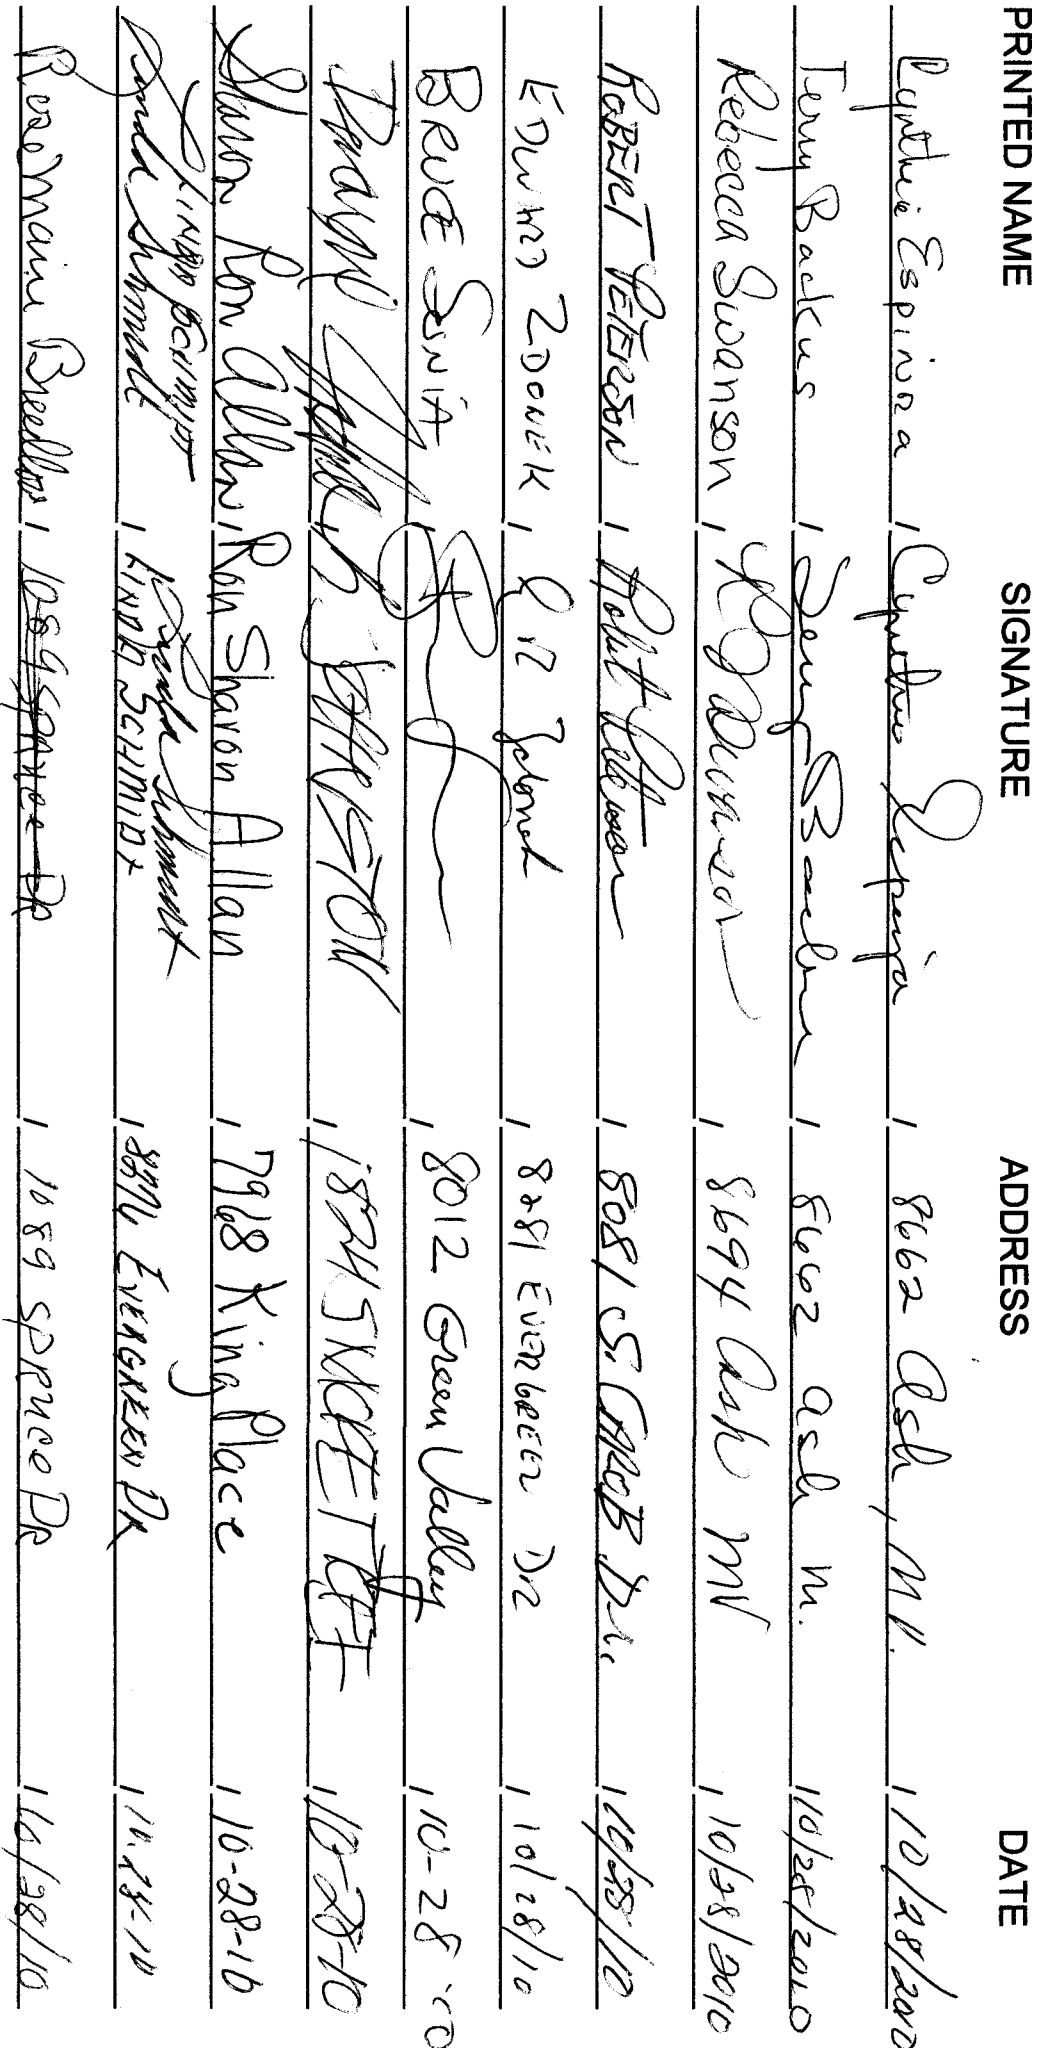 PRINTED NAME SIGNATURE ADDRESS DATE
Cynthia Espinoza Cynthia Espinoza 8662 Ash, M.V. 10/28/2010
Terry Backus Terry Backus 8662 ash m. 10/28/2010
Rebecca Swanson R Swanson 8694 Ash MV 10/28/2010
ROBERT PETERSON Robert Peterson 8081 S. CAROB Dr. 10/28/10
EDWARD ZDONEK Ed Zdonek 8281 EVERGREEN DR 10/28/10
BRUCE 8012 Green Valley 10-28-10
JOHNSTON 10-28-10
Sharon Ron Allan Ron Sharon Allan 7968 King Place 10-28-10
LINDA SCHMIDT
Linda Schmidt Linda Schmidt
LINDA SCHMIDT EVERGREEN DR 10-28-10
Rose Marie 1089 Spruce DR 1089 Spruce DR 10/28/10